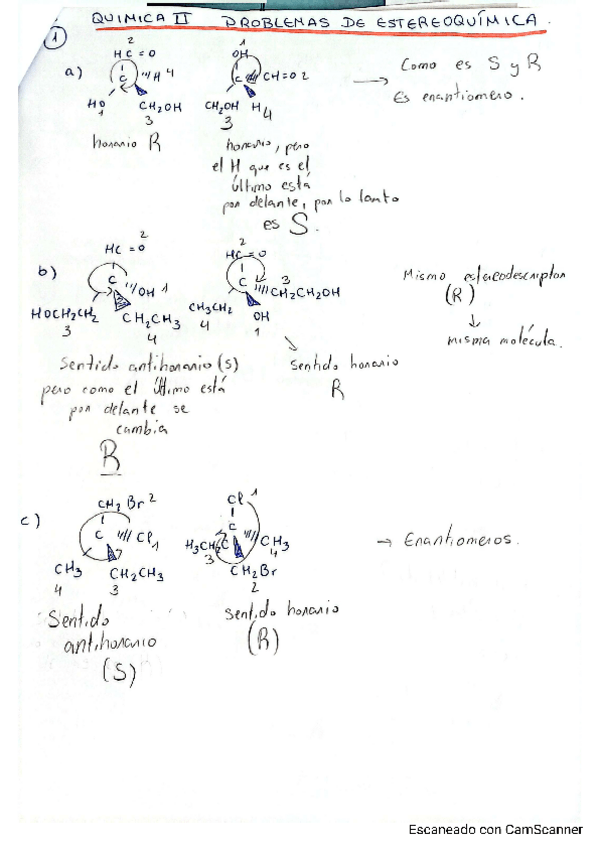 QUIMICA II PROBLEMAS DE ESTEREOQUÍMICA.
1
a)
2
HC = O
C
H 4
HO
1
CH2OH
3
horario R
1
OH
C
CH=O 2
CH2OH
3
H
4
horario, pero
el H que es el
último está
por delante, por lo tanto
es S.
Como es S y R
Es enantiomero.
b)
2
HC = O
C
OH 1
HOCH2CH2
3
CH2CH3
4
Sentido antihorario (S)
pero como el último está
por delante se
cambia
R
2
HC = O
C
3
CH2CH2OH
CH3CH2
4
OH
1
Sentido horario
R
Mismo estereodescriptor
(R)
misma molécula.
c)
CH2 Br 2
C
Cl 1
CH3
4
CH2CH3
3
Sentido
antihorario
(S)
Cl 1
C
H3CH2C
3
CH3
4
CH2Br
2
Sentido horario
(R)
→ Enantiomeros.
Escaneado con CamScanner